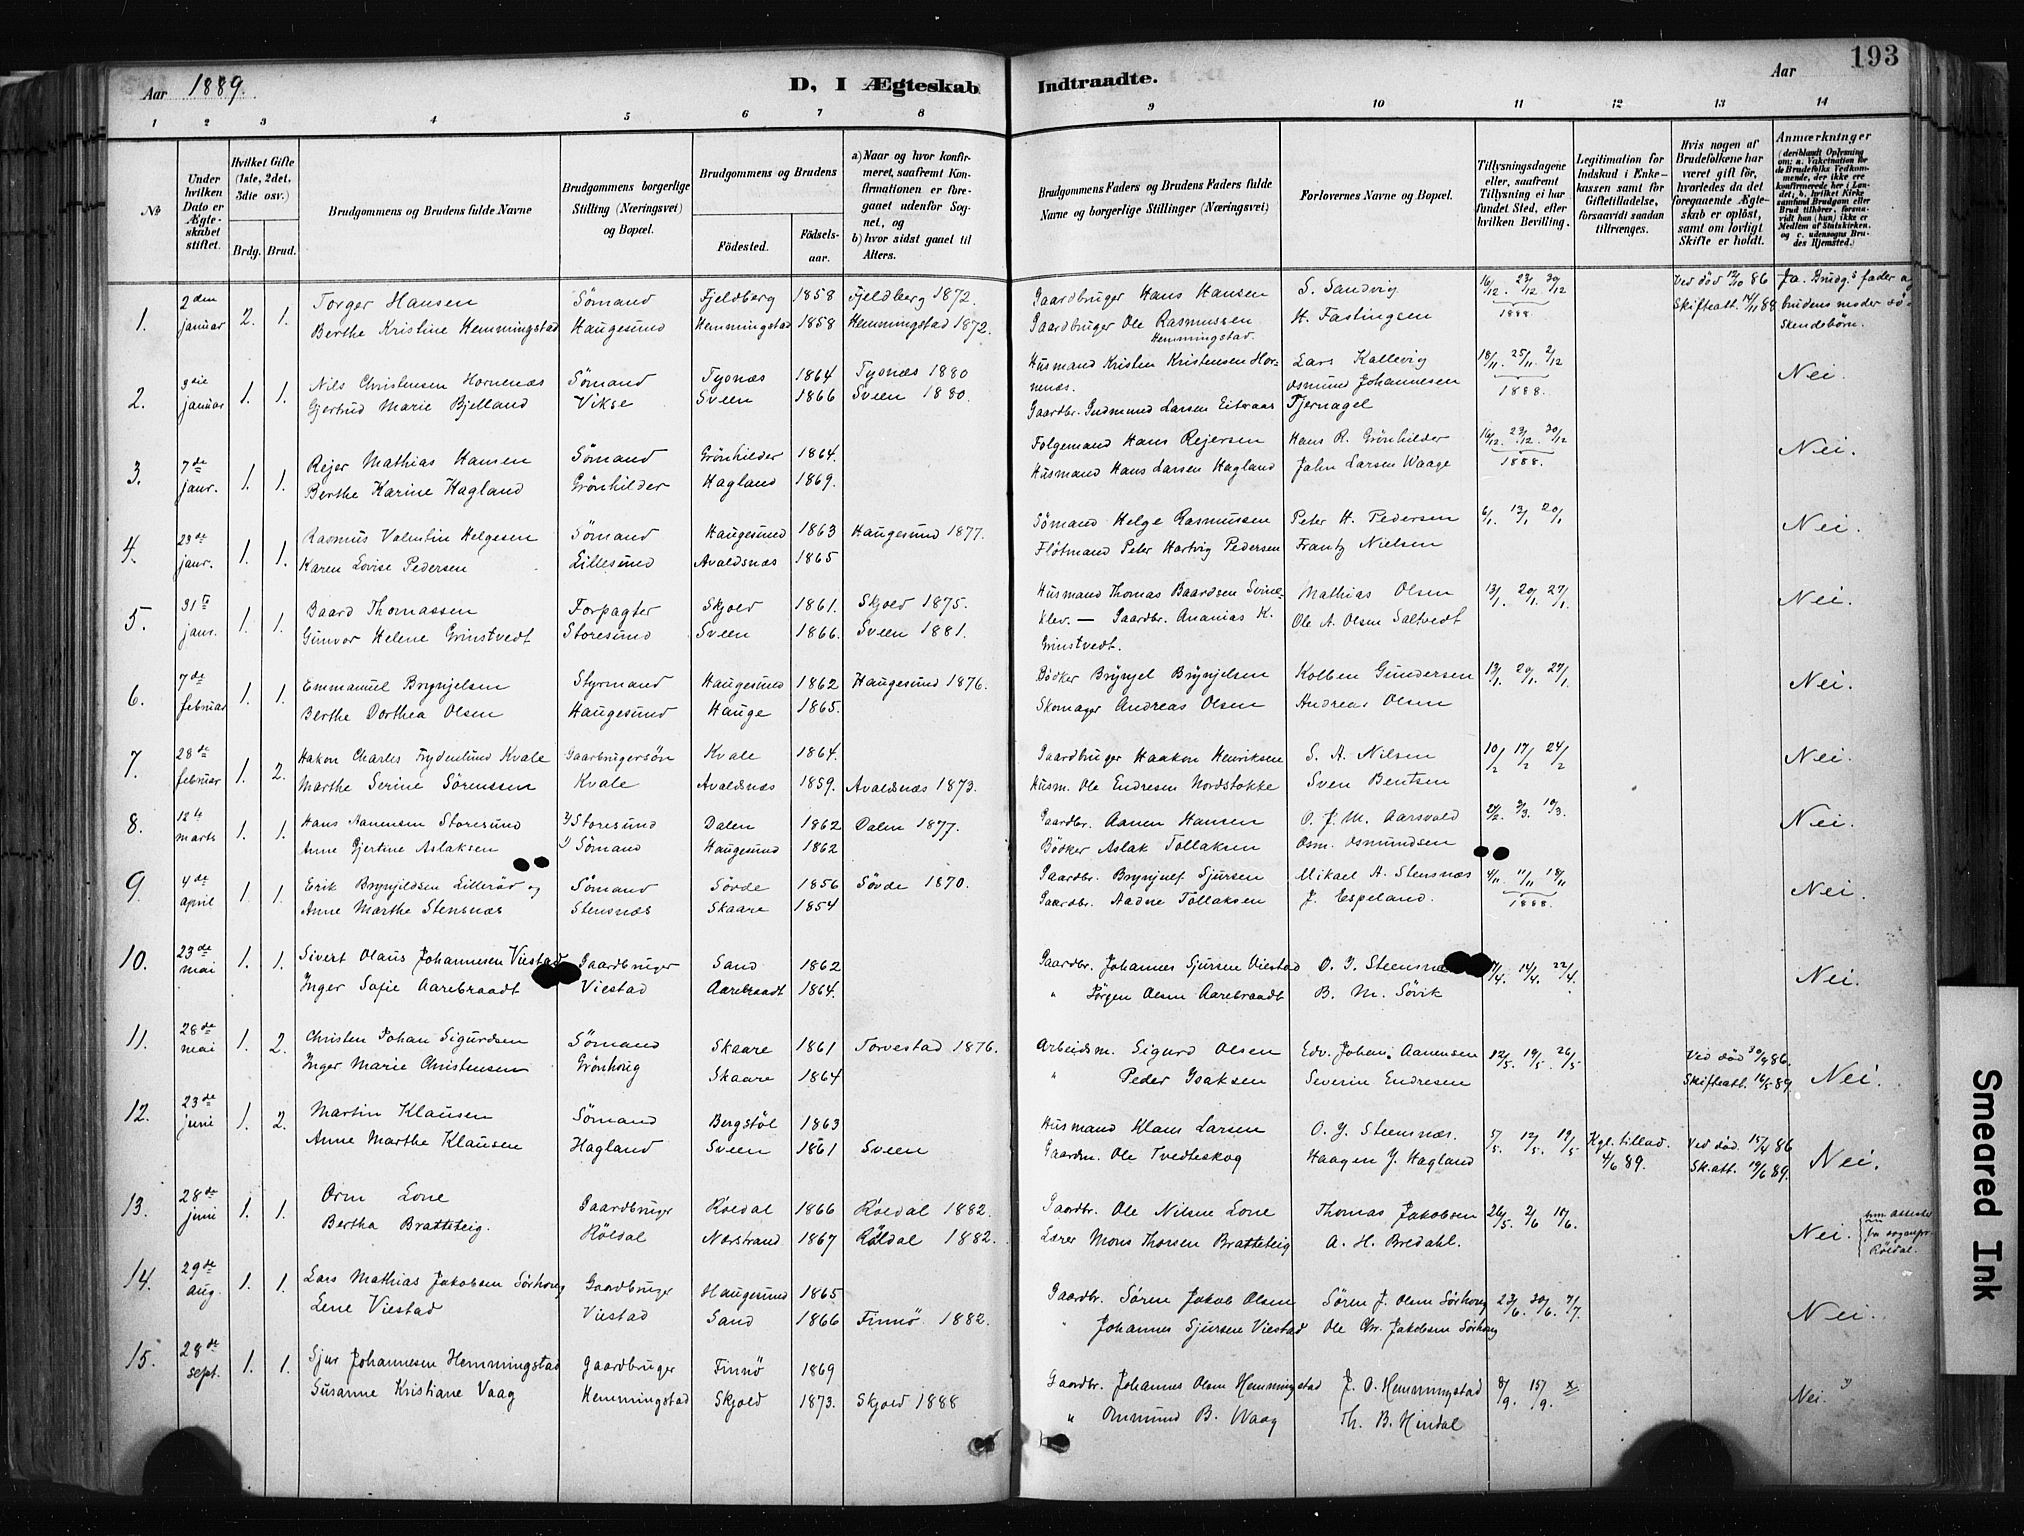 193
Aar 1889. D, I Ægteskab Indtraadte. Aar
1 2 3 4 5 6 7 8 9 10 11 12 13 14
No
Under hvilken Dato er Ægteskabet stiftet.
Hvilket Gifte (1ste, 2det, 3die osv.)
Brdg. Brud.
Brudgommens og Brudens fulde Navne
Brudgommens borgerlige Stilling (Næringsvei) og Bopæl.
Brudgommens og Brudens
Fødested. Fødselsaar.
a) Naar og hvor konfirmeret, saafremt Konfirmationen er foregaaet udenfor Sognet, og
b) hvor sidst gaaet til Alters.
Brudgommens Faders og Brudens Faders fulde Navne og borgerlige Stillinger (Næringsvei)
Forlovernes Navne og Bopæl.
Tillysningsdagene eller, saafremt Tillysning ei har fundet Sted, efter hvilken Bevilling.
Legitimation for Indskud i Enkekassen samt for Giftetilladelse, forsaavidt saadan tiltrænges.
Hvis nogen af Brudefolkene har været gift før, hvorledes da det foregaaende Ægteskab er opløst, samt om lovligt Skifte er holdt.
Anmærkninger (deriblandt Oplysning om: a. Vakcination for de Brudefolks Vedkommende, der ikke ere konfirmerede her i Landet; b. hvilket Kirkesamfund Brudgom eller Brud tilhører, forsaavidt han (hun) ikke er Medlem af Statskirken, og c. udensogns Brudes Hjemsted.)
1. 2den januar 2. 1. Torger Hansen Sömand Fjeldberg 1858 Fjeldberg 1872. Gaardbruger Hans Hansen S. Sandvig 16/12. 23/12 30/12 Ved död 12/10 86 Ja. Brudg.s fader og
Berthe Kristine Hemmingstad Haugesund Hemmingstad 1858 Hemmingstad 1872. Gaardbruger Ole Rasmussen Hemmingstad. H. Fastingsen 1888. Skifteatt. brudens moder sö-
skendebörn.
2. 3die januar 1. 1. Nils Christensen Hornenæs Sömand Tysnæs 1864 Tysnæs 1880 Husmand Kristen Kristensen Hor- Lars Kallevig 18/11. 25/11. 2/12 Nei.
nenæs. Osmund Johannesen 1888.
Gjertrud Marie Bjelland Vikse Sveen 1866 Sveen 1880. Gaardbr. Gudmund Larsen Eitraas Tjernagel
3. 7de janr. 1. 1. Rejer Mathias Hansen Sömand Grönhilder 1864. Folgemand Hans Rejersen Hans R. Grönhilder 16/12. 23/12. 30/12 Nei.
Berthe Karine Hagland Grönhilder Hagland 1869. Husmand Hans Larsen Hagland John Larsen Waage 1888.
4. 23de janr. 1. 1. Rasmus Valentin Helgesen Sömand Haugesund 1863 Haugesund 1877. Sömand Helge Rasmussen Peter H. Pedersen 6/1. 13/1 20/1 Nei.
Karen Lovise Pedersen Lillesund Avaldsnæs 1865 Flötmand Peter Hartvig Pedersen Frantz Nielsen
5. 31te janr. 1. 1. Baard Thomassen Forpagter Skjold 1861. Skjold 1875. Husmand Thomas Baardsen Svine- Mathias Olsen 13/1. 20/1 27/1 Nei.
Gunvor Helene Grinstvedt Storesund Sveen 1866. Sveen 1881. klev. — Gaardbr. Ananias K. Ole A. Olsen Saltvedt
Grinstvedt.
6. 7de februar 1. 1. Emmanuel Brynjelsen Styrmand Haugesund 1862 Haugesund 1876. Bödker Brynjel Brynjelsen Kolben Gundersen 13/1. 20/1. 27/1 Nei.
Berthe Dorthea Olsen Haugesund Hauge 1865. Skomager Andreas Olsen Andreas Olsen
7. 28de februar 1. 2. Hakon Charles Frydenlund Kvale Gaarbrugersön Kvale 1864. Gaardbruger Haakon Henriksen S. A. Nilsen 10/2 17/2 24/2 Nei.
Marthe Serine Sörenssen Kvale Avaldsnæs 1859. Avaldsnæs 1873. Husm. Ole Endresen Nordstokke Sven Bentsen
8. 12te marts 1. 1. Hans Aanensen Storesund 2) Storesund Dalen 1862 Dalen 1877. Gaardbr. Aanen Hansen O. J. M. Aarsvold 24/2. 3/3. 10/3. Nei.
Anne Gjertine Aslaksen 1) Sömand Haugesund 1862 Bödker Aslak Tollaksen Osm. Osmundsen
9. 4de april 1. 1. Erik Brynjildsen Lilleröd og Sömand Sövde 1856 Sövde 1870. Gaardbr. Brynjulf Sjursen Mikael A. Stensnæs 4/11 11/11 18/11 Nei.
Anne Marthe Stensnæs Stensnæs Skaare 1854 Gaardbr. Aadne Tollaksen J. Espeland. 1888.
10. 23de mai 1. 1. Sivert Olaus Johannesen Viestad Gaardbruger Sand 1862 Gaardbr. Johannes Sjursen Viestad 14/4. 22/4. Nei.
Inger Sofie Aarebraadt Viestad Aarebraadt 1864. " Jörgen Olsen Aarebraadt B. M. Sövik
11. 28de mai 1. 2. Christen Johan Sigurdsen Sömand Skaare 1861 Torvestad 1876. Arbeidsm. Sigurd Olsen Edv. Johan. Aanensen 12/5. 19/5. 26/5 Ved död 86. Nei.
Inger Marie Christensen Grönhoug Skaare 1864 " Peder Isaksen Severin Endresen Skifteatt. 16/5 89.
12. 23de juni 1. 2. Martin Klausen Sömand Bergstöl 1863 Husmand Klaus Larsen O. J. Steensnæs. 5/5. 12/5. 19/5 Kgl. tillad. 4/6 89. Ved död. 15/4 86 Nei.
Anne Marthe Klausen Hagland Sveen 1861 Sveen Gaardm. Ole Tvedteskog Haagen J. Hagland Sk.att. 19/6 89.
13. 28de juni 1. 1. Orm Lone Gaardbruger Röldal 1866 Röldal 1882. Gaardbr. Ole Nilsen Lone Thomas Jakobsen 26/5. 2/6 10/6. Nei.
Bertha Bratteteig. Röldal Nærstrand 1867 Röldal 1882. Lærer Mons Thorsen Bratteteig A. H. Bredahl. Röldal.
14. 29de aug. 1. 1. Lars Mathias Jakobsen Sörhoug Gaardbruger Haugesund 1865 Gaardbr. Sören Jakob Olsen Sören J. Olsen Sörhoug 23/6. 30/6. 7/7 Nei.
Lene Viestad Viestad Sand 1866 Finnö 1882. " Johannes Sjursen Viestad Ole Chr. Jakobsen Sörhoug
15. 28de sept. 1. 1. Sjur Johannesen Hemmingstad Gaardbruger Finnö 1869 Gaardbr. Johannes Olsen Hemmingstad J. O. Hemmingstad 8/9. 15/9. Nei.
Susanne Kristiane Vaag Hemmingstad Skjold 1873. Skjold 1888 " B. Waag Th. B. Hindal
Smeared Ink